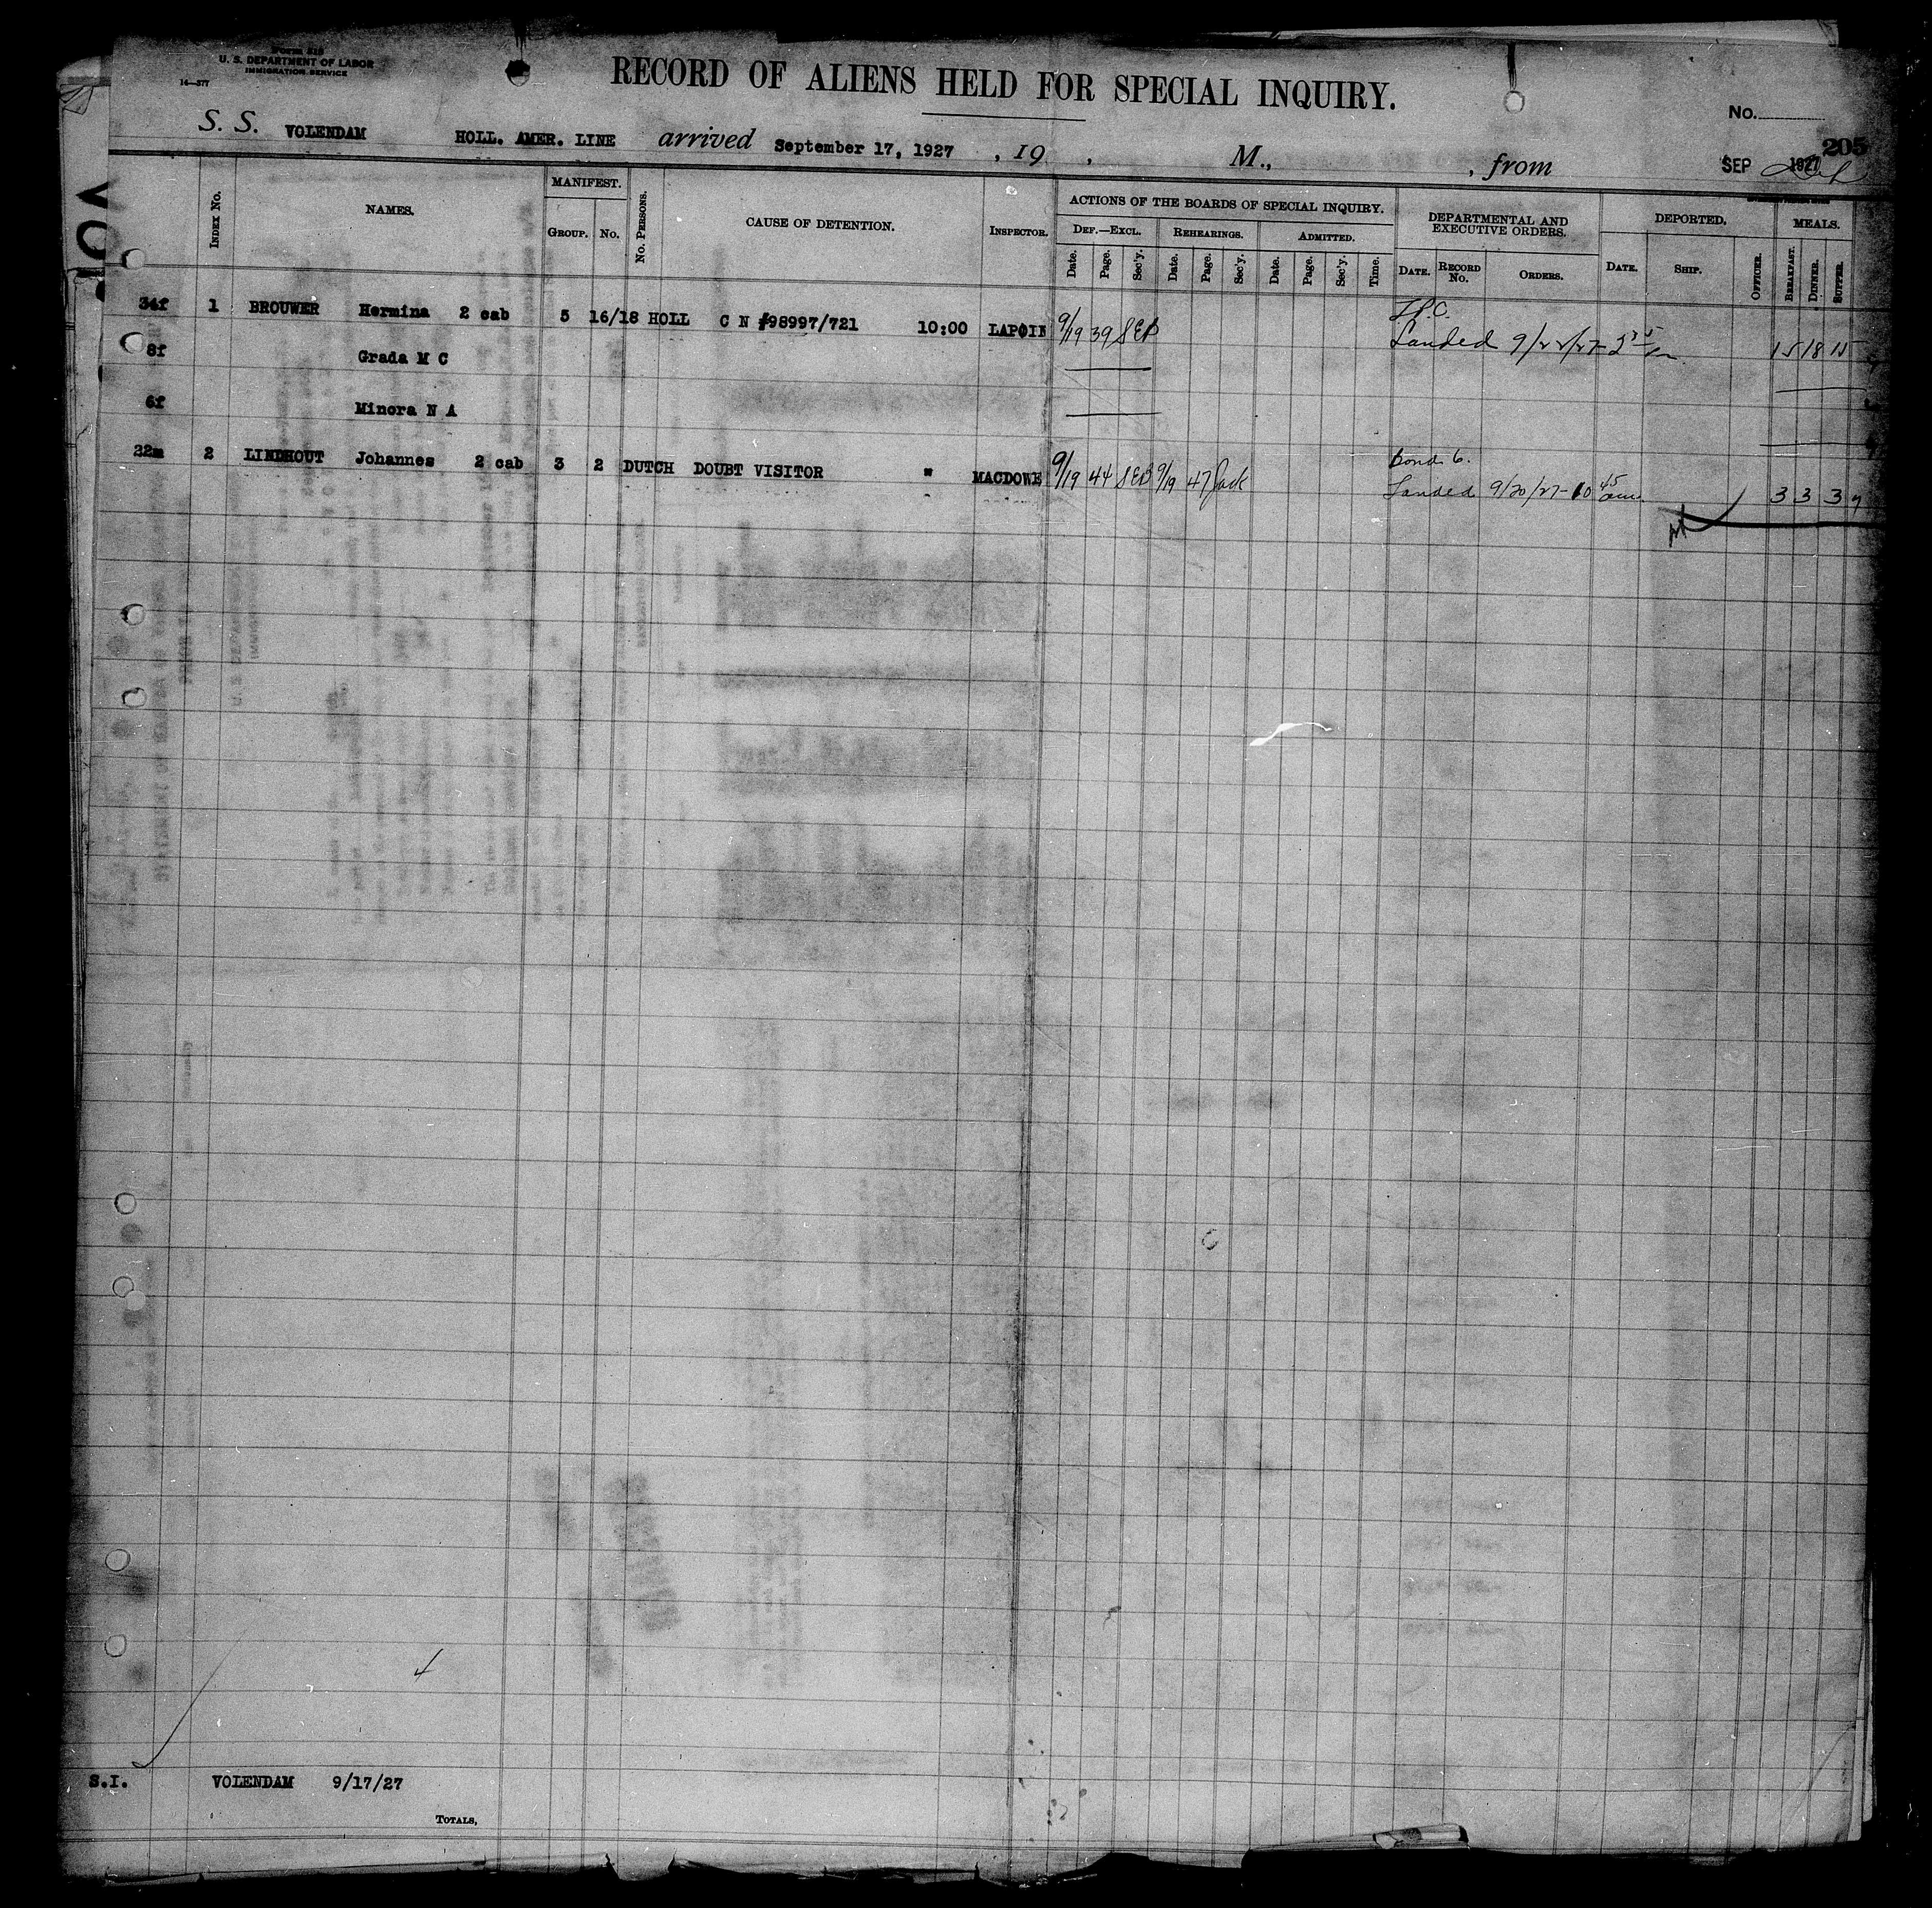 Form 519
U. S. DEPARTMENT OF LABOR
IMMIGRATION SERVICE
14—577
RECORD OF ALIENS HELD FOR SPECIAL INQUIRY.
No.
205
S. S. VOLENDAM HOLL. AMER. LINE arrived September 17, 1927 , 19 , M., , from SEP 1927
VOL
INDEX No. NAMES. MANIFEST. GROUP. No. No. PERSONS. CAUSE OF DETENTION. INSPECTOR. ACTIONS OF THE BOARDS OF SPECIAL INQUIRY. DEPARTMENTAL AND EXECUTIVE ORDERS. DEPORTED. MEALS.
DEF.—EXCL. REHEARINGS. ADMITTED.
Date. Page. Sec'y. Date. Page. Sec'y. Date. Page. Sec'y. Time. DATE. RECORD No. ORDERS. DATE. SHIP. OFFICER. BREAKFAST. DINNER. SUPPER.
34f 1 BROUWER Hermina 2 cab 5 16/18 HOLL C N #98997/721 10:00 LAPOIN 9/19 39 SEB
Landed 9/22/27 15 18 15
8f Grada M C
6f Minora N A
22m 2 LINDHOUT Johannes 2 cab 3 2 DUTCH DOUBT VISITOR " MACDOWE 9/19 44 SEB 9/19 47 Jack Bond 6.
Landed 9/20/27-10 45 am 3 3 3
S.I. VOLENDAM 9/17/27
TOTALS,